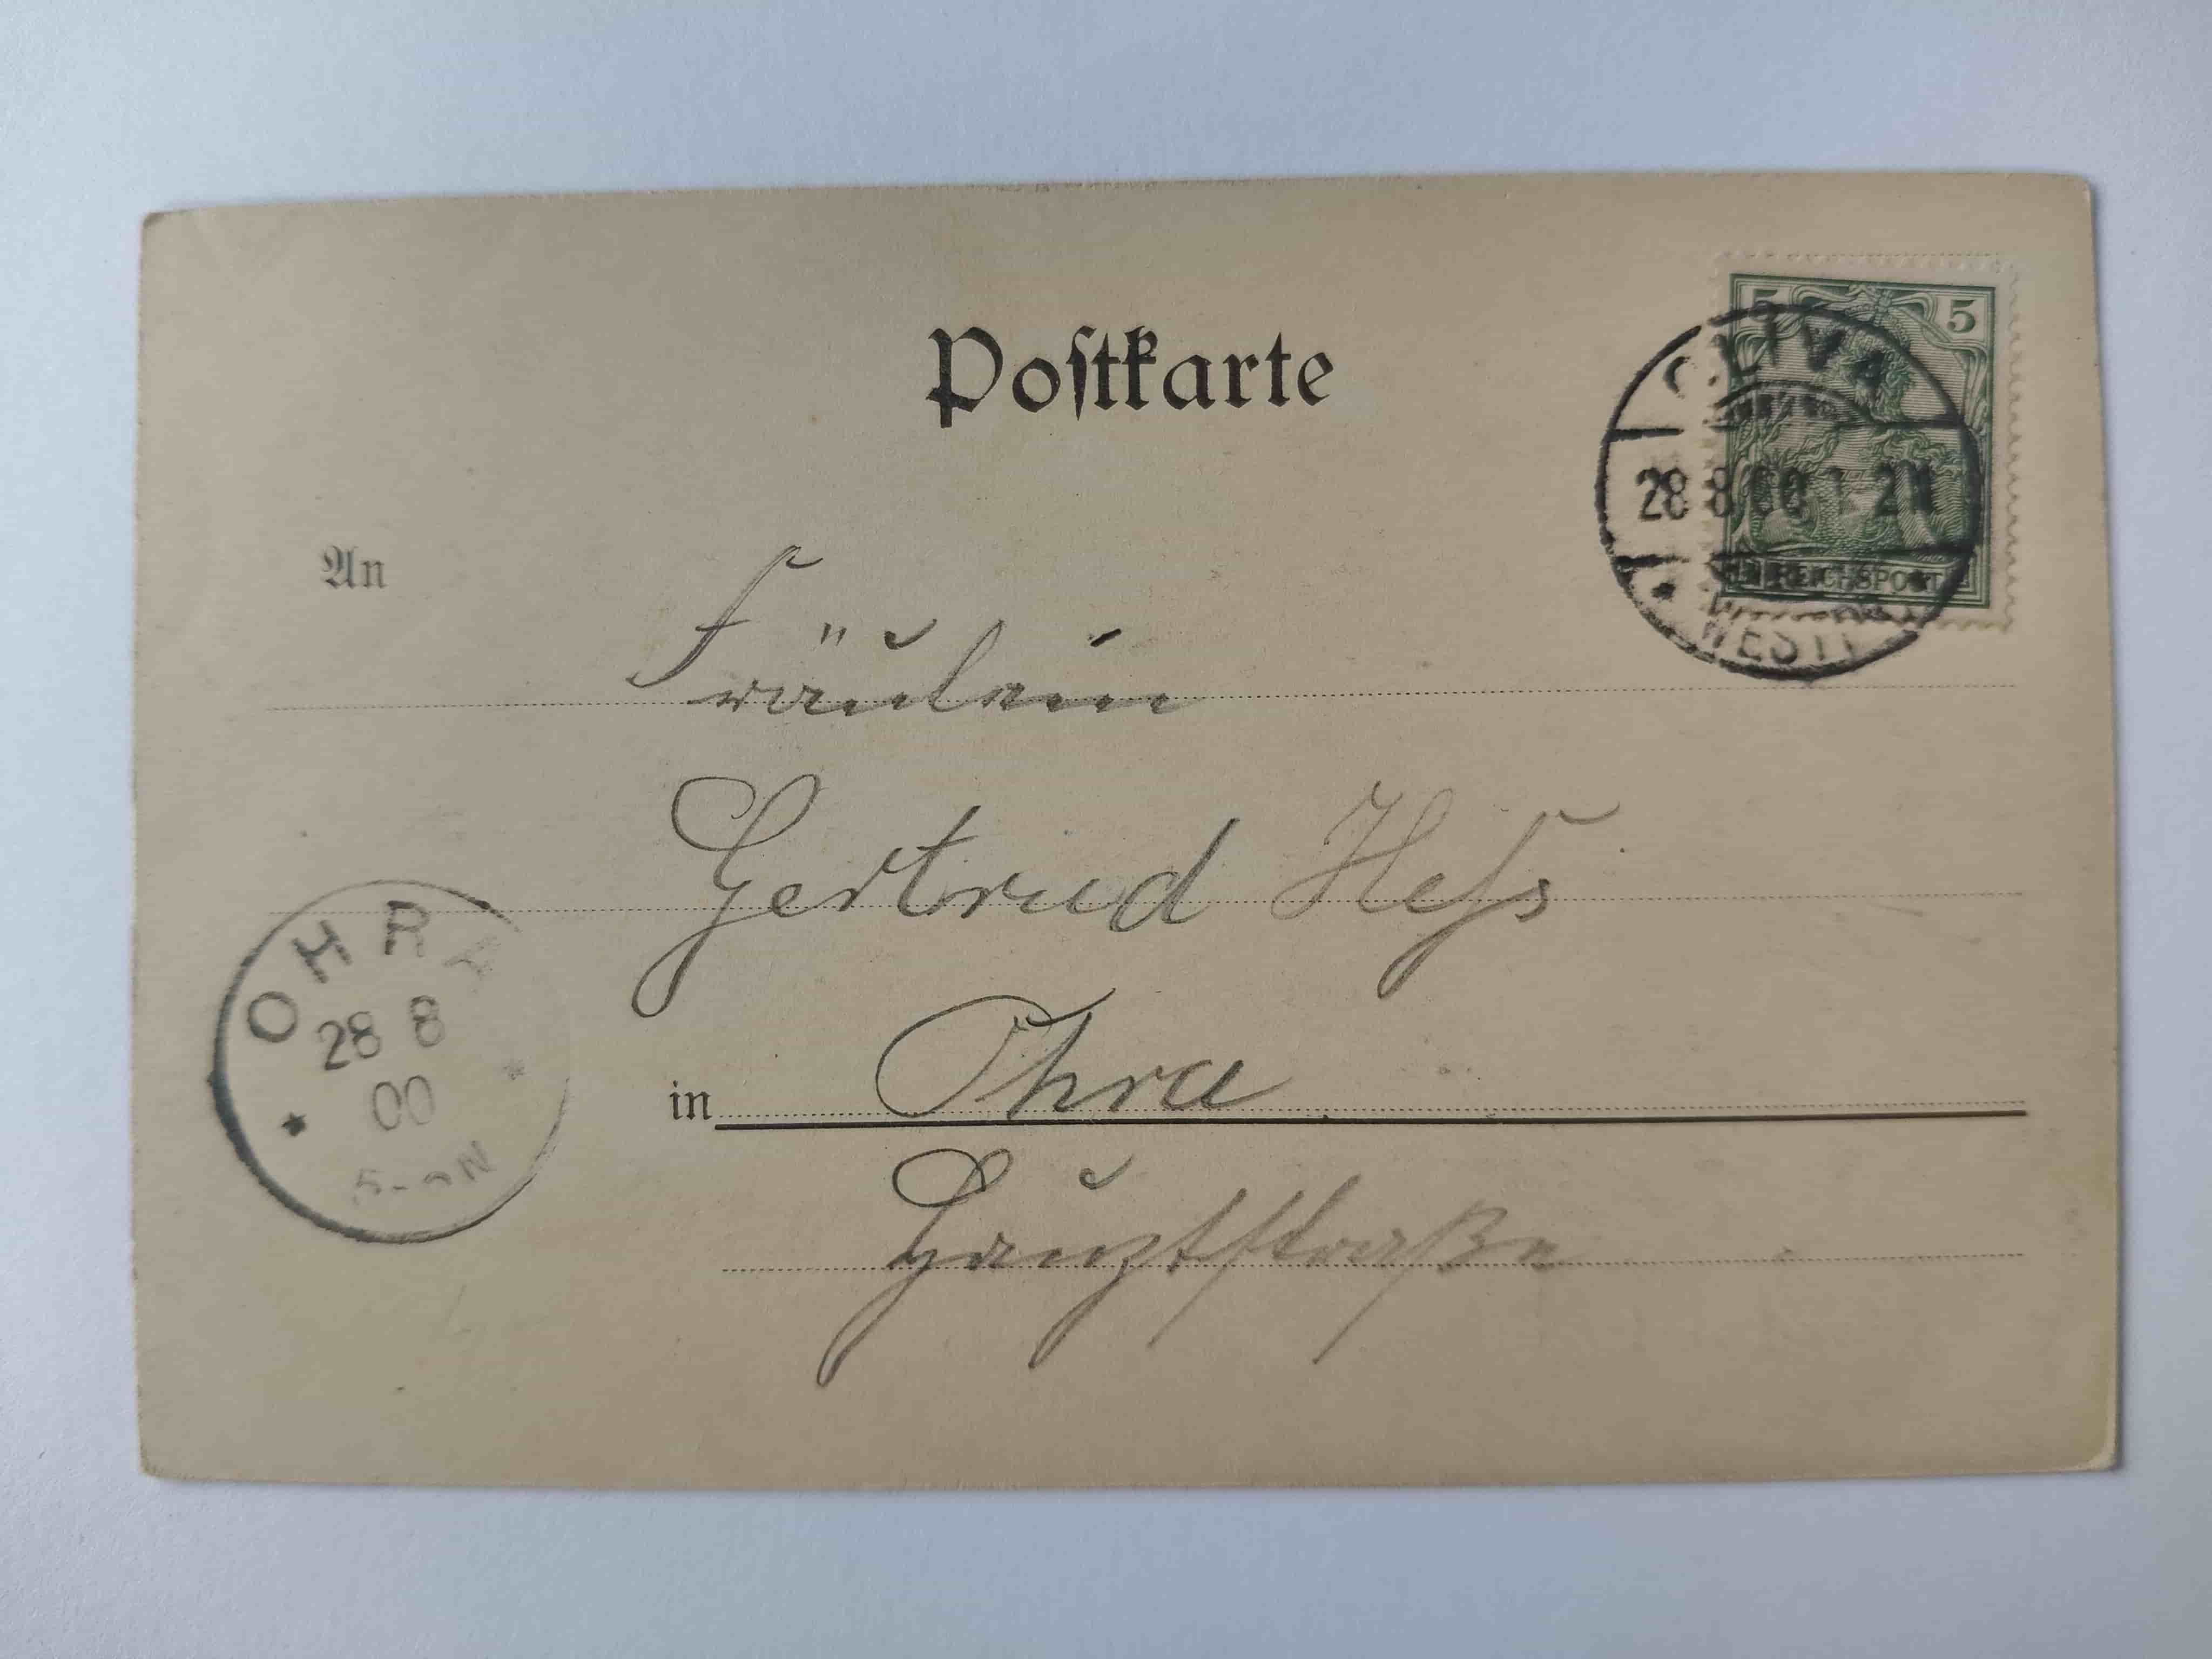 Postkarte
5 5
OLIVA
28 8 00 1-2N
REICHSPOST
* WESTPR
An
Fräulein
Gertrud Heſs
OHRA
28 8
00
in Ohra
Hauptſtraße